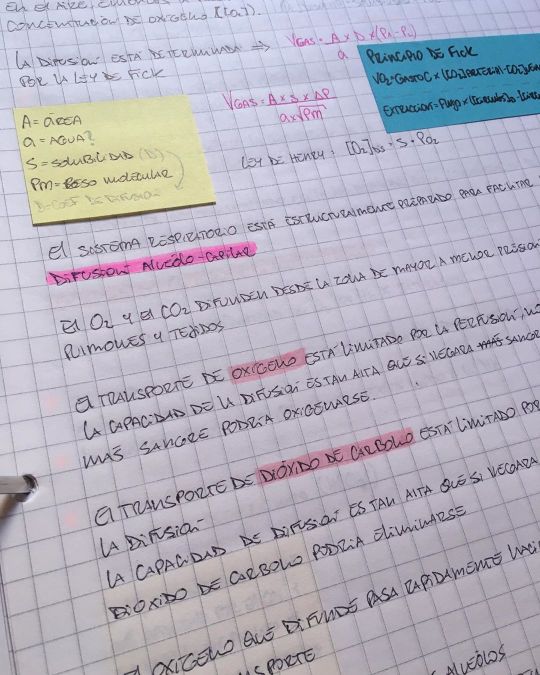 en el aire, 
CONCENTRACIÓN DE OXÍGENO [O2].
LA DIFUSIÓN ESTÁ DETERMINADA ⇒ VGAS = A × D × (P1-P2)
POR LA LEY DE FICK a
PRINCIPIO DE FICK
VO2 = GASTO C ×
EXTRACCIÓN = FLUJO ×
VGAS = A × S × ΔP
a × √Pm
A = ÁREA
a = AGUA?
S = SOLUBILIDAD (D)
Pm = PESO MOLECULAR
D = COEF DE DIFUSIÓN
LEY DE HENRY: [O2]DIS = S · PO2
El SISTEMA RESPIRATORIO ESTÁ ESTRUCTURALMENTE PREPARADO PARA FACILITAR
DIFUSIÓN ALVÉOLO-CAPILAR
El O2 y el CO2 DIFUNDEN DESDE LA ZONA DE MAYOR A MENOR PRESIÓN
PULMONES Y TEJIDOS
El TRANSPORTE DE OXÍGENO ESTÁ LIMITADO POR LA PERFUSIÓN,
LA CAPACIDAD DE LA DIFUSIÓN ES TAN ALTA QUE SI LLEGARA MÁS SANGRE
MÁS SANGRE PODRÍA OXIGENARSE.
El TRANSPORTE DE DIÓXIDO DE CARBONO ESTÁ LIMITADO POR
LA DIFUSIÓN
LA CAPACIDAD DE DIFUSIÓN ES TAN ALTA QUE SI LLEGARA
DIÓXIDO DE CARBONO PODRÍA ELIMINARSE
El OXÍGENO QUE DIFUNDE PASA RÁPIDAMENTE HACIA
ALVÉOLOS